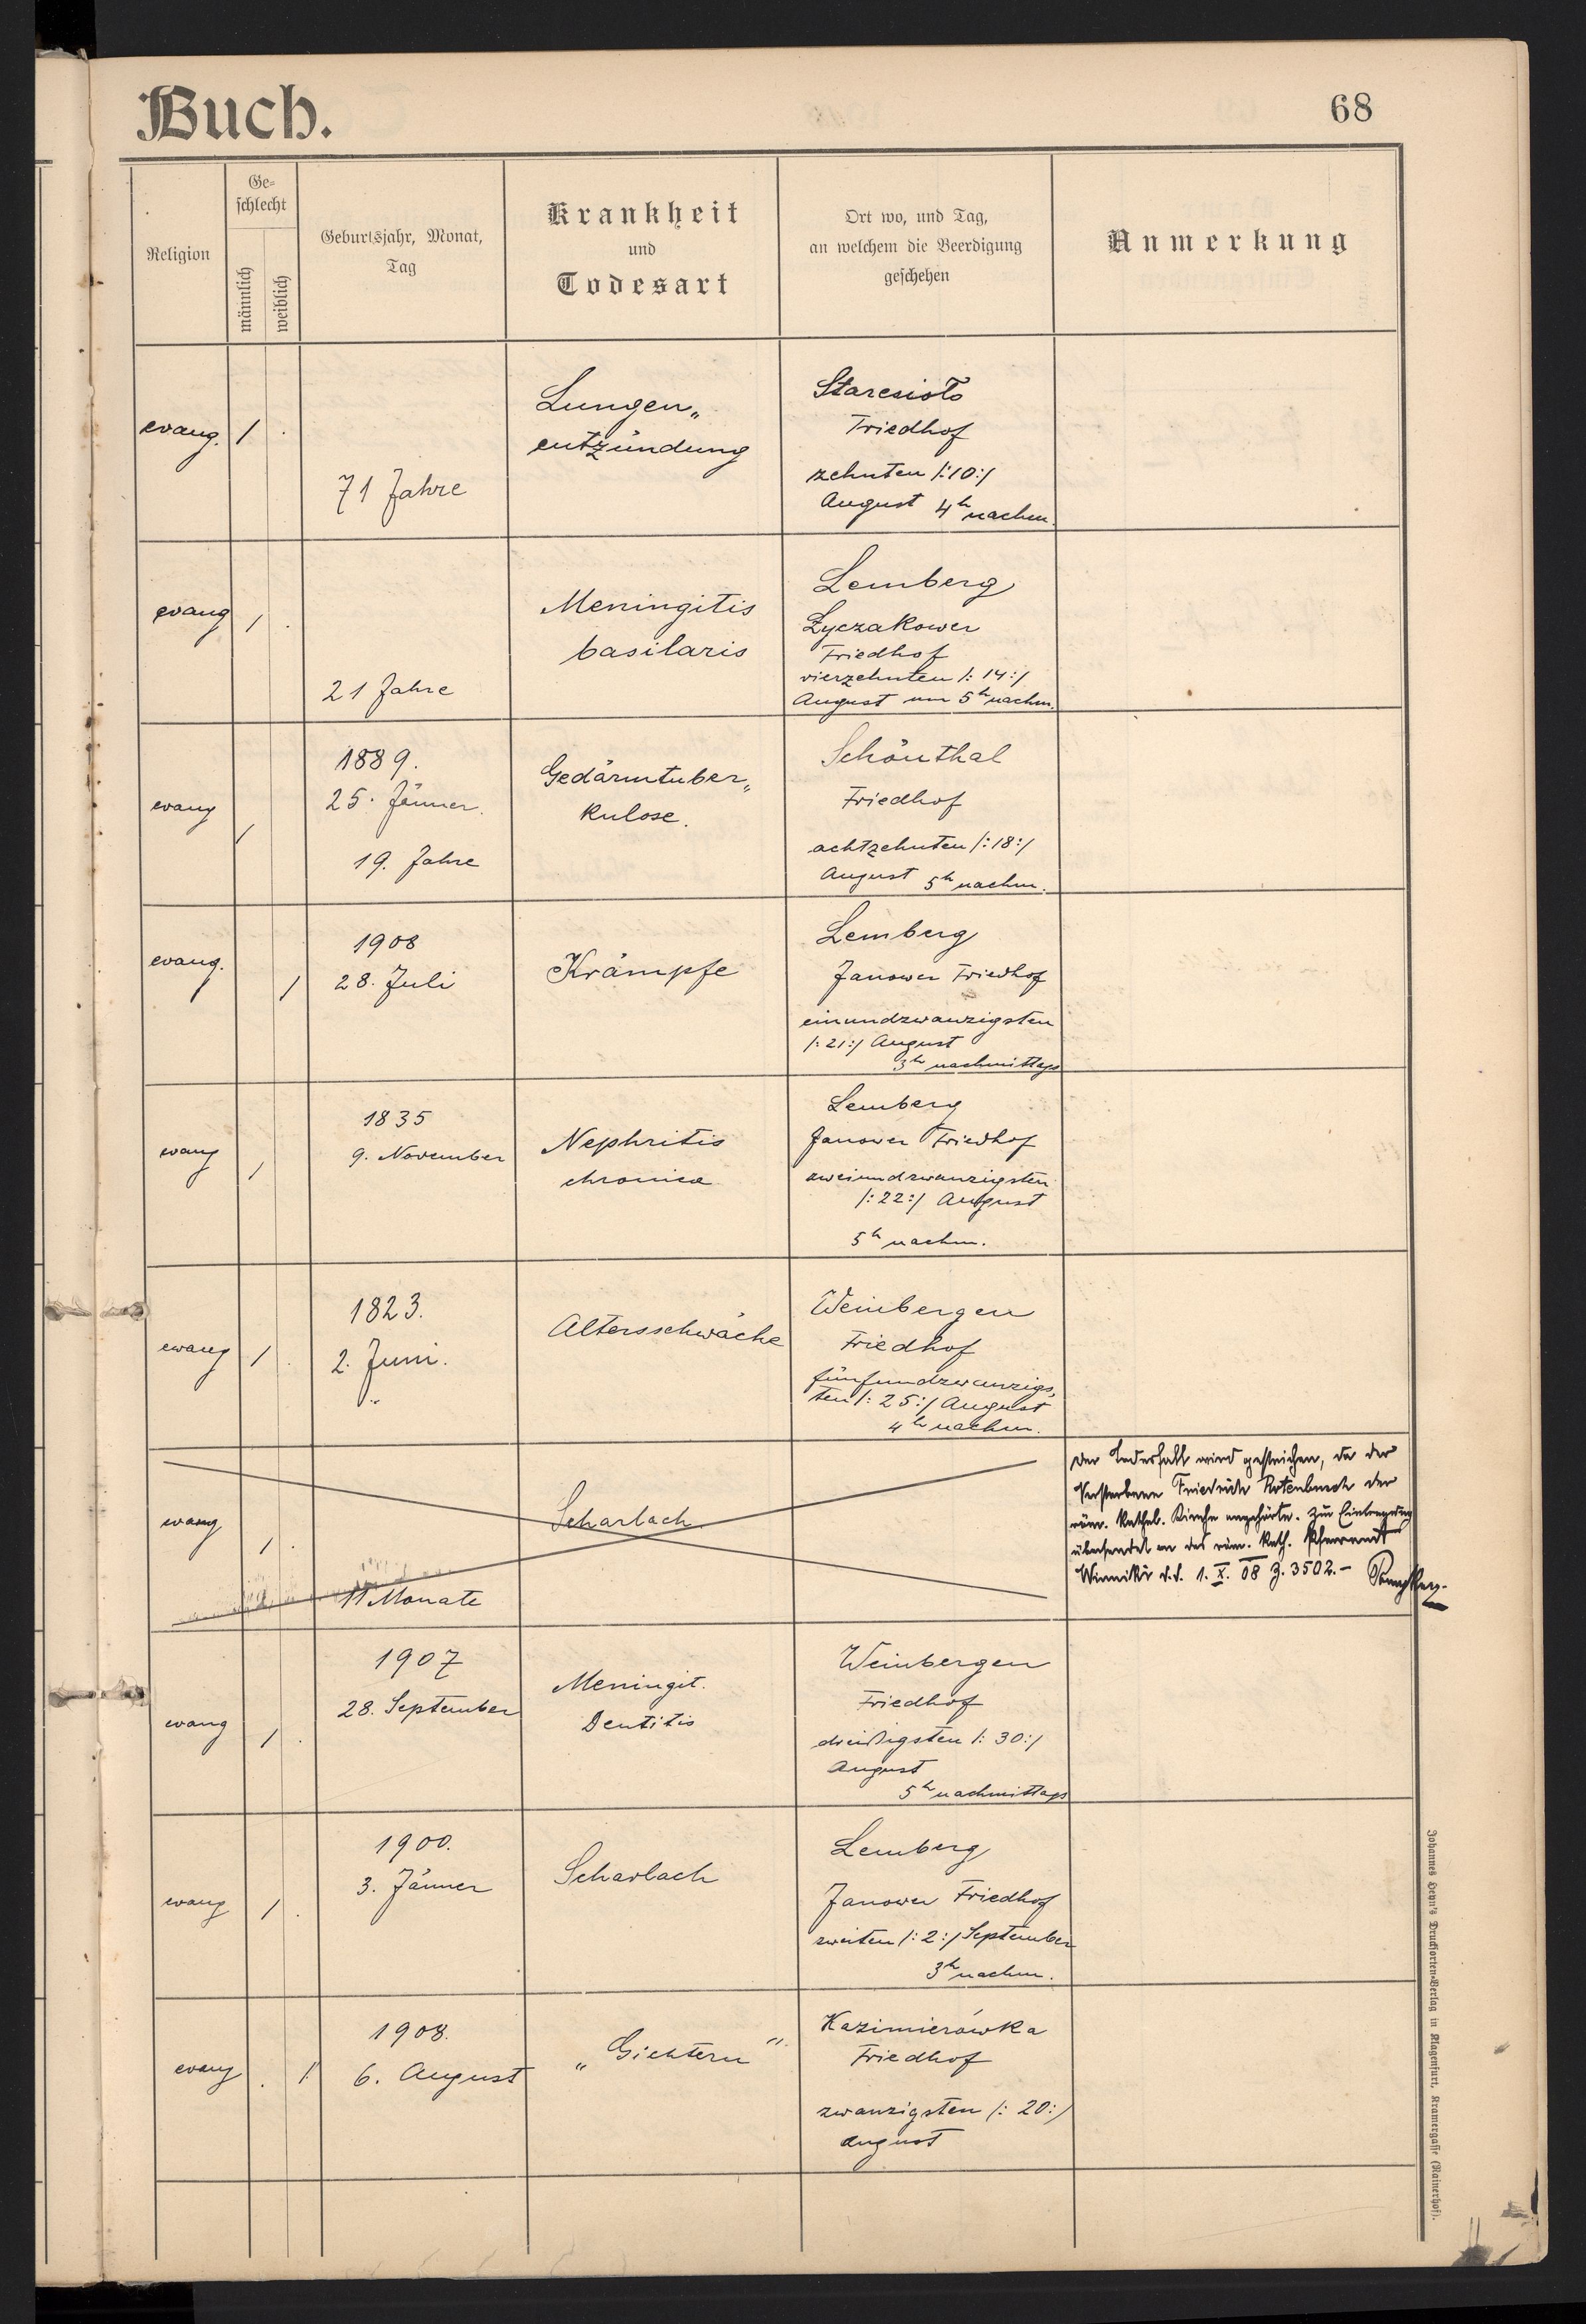 Buch.
68
Religion
Ge-
schlecht
männlich
weiblich
Geburtsjahr, Monat,
Tag
Krankheit
und
Todesart
Ort wo, und Tag,
an welchem die Beerdigung
geschehen
Anmerkung
evang.
/
.
71 Jahre
Lungen„
entzündung
Staresioło
Friedhof
zehnten /:10:/
August 4h nachm.
evang
/
.
21 Jahre
Meningitis
basilaris
Lemberg
Łyczakower
Friedhof
vierzehnten /: 14:/
August um 5h nachm.
evang
/
1889.
25. Jänner.
19. Jahre
Gedärmtuber„
kulose.
Schönthal
Friedhof
achtzehnten /:18:/
August 5h nachm.
evang.
/
1908
28. Juli
Krämpfe
Lemberg
Janower Friedhof
einundzwanzigsten
/: 21:/ August
3h nachmittags
evang
/
1835
9. November
Nephritis
chronica
Lemberg
Janower Friedhof
zweiundzwanzigsten
/: 22:/ August
5h nachm.
evang
/
.
1823.
2. Juni.
Altersschwäche
Weinbergen
Friedhof
fünfundzwanzigs„
ten /: 25:/ August
4h nachm.
evang
/
.
11 Monate
Scharlach
Der Todesfall wird gestrichen, da der
Verstorbene Friedrich Rotenbusch der
röm. kathol. Kirche angehörte. Zur Eintragung
übersendet an das röm. kath. Pfarramt
Winniki d.d. 1. X. 08 Z. 3502.-
evang
/
.
1907
28. September
Meningit.
Dentitis
Weinbergen
Friedhof
dreißigsten /: 30:/
August
5h nachmittags
evang
/
.
1900.
3. Jänner
Scharlach
Lemberg
Janower Friedhof
zweiten /: 2:/ September
3h nachm.
evang
.
/
1908.
6. August
„Gichtern"
Kazimierówka
Friedhof
zwanzigsten /: 20:/
August
Johannes Heyn's Drucksorten-Verlag in Klagenfurt, Kramergasse (Rainerhof).